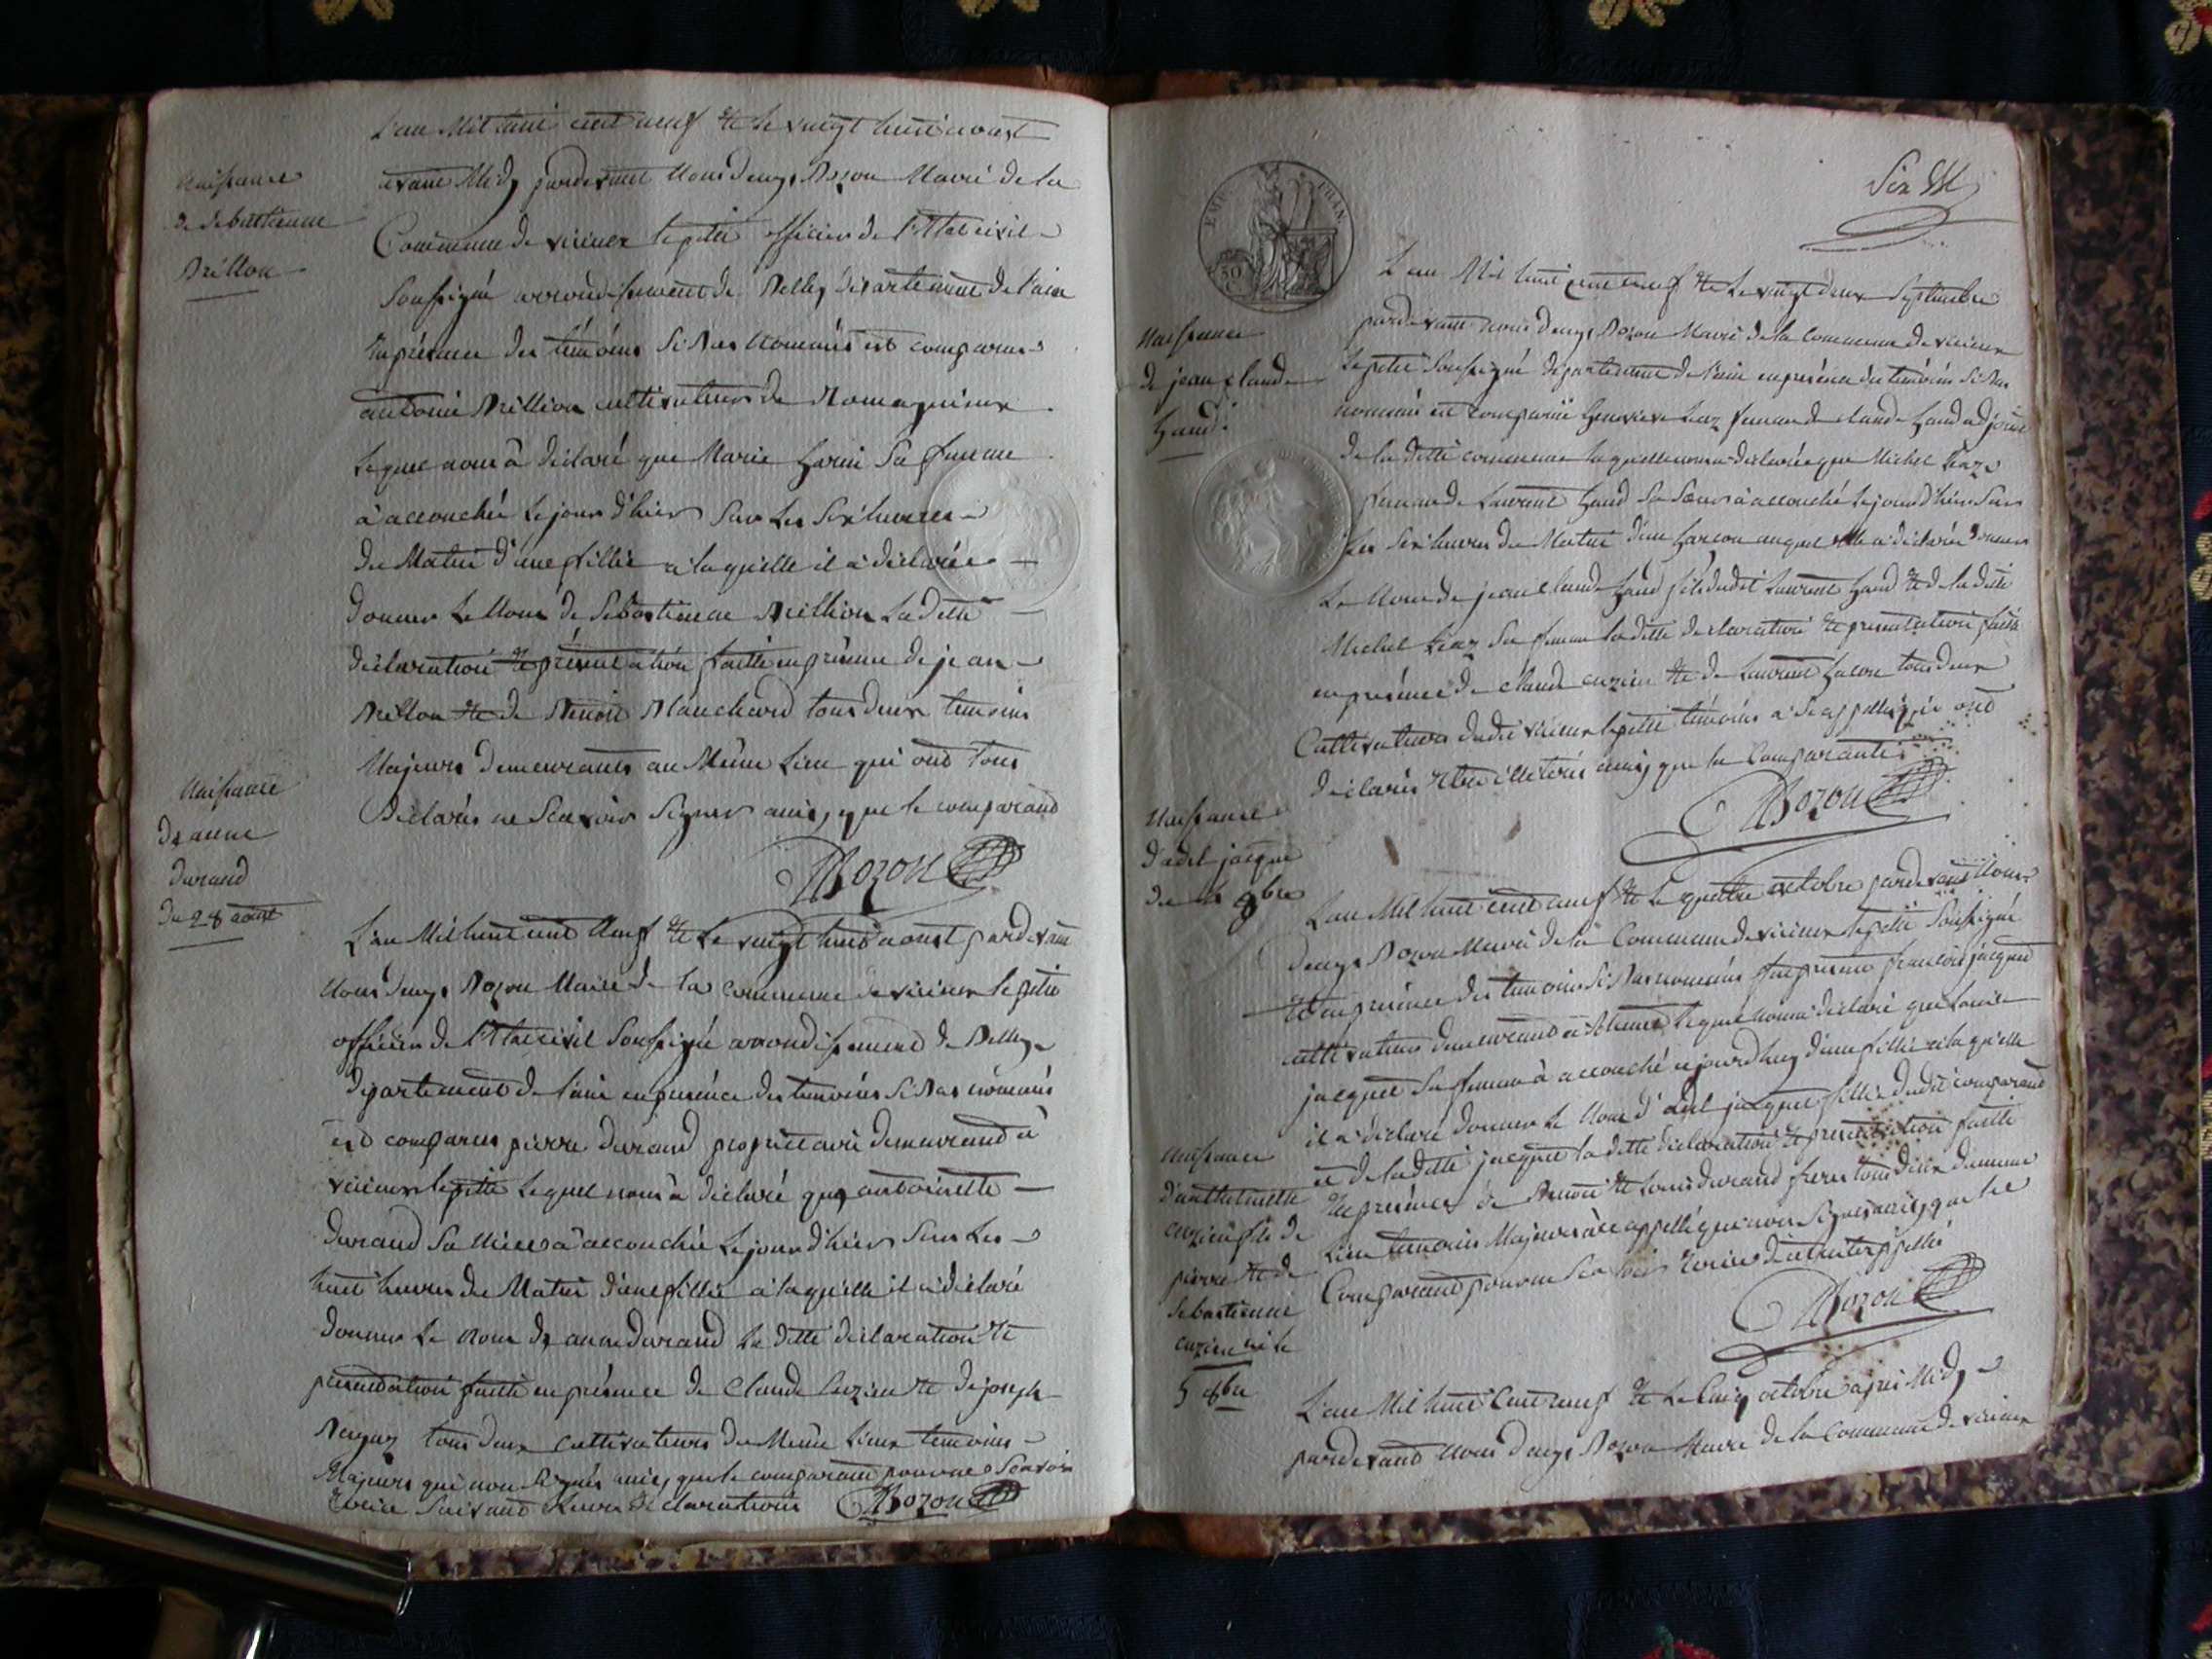 L'an Mil huit cent neuf et le vingt huit aoust
Naissance
de Sebastienne
Brillon
avant Midy pardevant Nous denys Bozon Maire de la
Commune de virieux le petit officier de l'Etat civil
Soussigné arrondissement de Belley département de l'ain
en présence des témoins si bas nommés est comparus
antoine Brillion cultivateur de
Lequel nous à déclaré que Marie sa femme
à accouchée le jour d'hier sur les six heures
du Matin d'une fillie a laquelle il à déclarée
donner le Nom de Sebastienne Brillion La ditte
déclaration et présentation faitte en présence de jean
Brillon et de Benoit Blanchard tous deux temoins
Majeurs demeurants au Même Lieu qui ont tous
déclarés ne Scavoir Signer ainsy que le comparand
DBozon
Naissance
de anne
durand
du 28 aoust
L'an Mil huit cent Neuf et le vingt huit aoust pardevant
Nous denys Bozon Maire de la commune de virieux le petit
officier de l'Etat civil Soussigné arrondissement de Belley
département de l'ain en présence des temoins si bas nommés
est comparus pierre durand proprietaire demeurand à
virieux le petit Lequel nous à déclaré que antoinette
durand sa à accouchée Le jour d'hier sur les
huit heures du Matin d'une fillie a laquelle il a déclaré
donner Le Nom de anne durand La ditte déclaration et
présentation faitte en présence de Claude Cuzin et de joseph
tous deux cultivateurs du Même Lieux temoins
Majeurs qui non Signés ainsy que le comparant pour ne Scavoir
Ecrire Suivant Leurs déclarations DBozon
EMP. FRAN.
50
Six
Naissance
de jean claude
L'an Mil huit cent neuf et Le vingt deux Septembre
pardevant nous denys Bozon Maire de la commune de virieux
le petit Soussigné département de l'ain en présence des temoins si bas
nommés est comparue Genevieve femme de claude adjoint
de la ditte commune laquelle nous a déclarée que Michel
femme de Laurent sa Soeur à accouché le jour d'hier sur
Les six heures du Matin d'un Garcon auquel elle a déclarée donner
Le Nom de jean claude fils dudit Laurent et de la ditte
Michel sa femme la ditte déclaration et présentation faitte
en présence de claude cuzin et de Laurent tous deux
Cultivateurs dudit virieux le petit témoins à ce appellés qui ont
déclarés Etre illeterés ainsy que la Comparante
DBozon
Naissance
d'adel jacque
du 4 8bre
L'an Mil huit cent neuf et Le quatre octobre pardevant Nous
denys Bozon Maire de la Commune de virieux le petit Soussigné
et en présence des temoins si bas nommés françois jacques
cultivateur demeurand à Lequel nous a déclaré que
jacques sa femme à accouché aujourd'huy d'une fillie a laquelle
il a déclaré donner Le Nom d'adel jacques fillie dudit comparand
et de laditte jacques la ditte déclaration et présentation faitte
en présence de Benoit et Louis durand freres tous deux du meme
Lieu temoins Majeurs à ce appellé que nous Signes ainsy que le
Comparand pour ne Scavoir Ecrire
DBozon
Naissance
cuzin de
pierre et de
Sebastienne
cuzin né le
5 8bre
L'an Mil huit Cent neuf et Le Cinq octobre apres Midy
pardevand nous denys Bozon Maire de la Commune de virieux